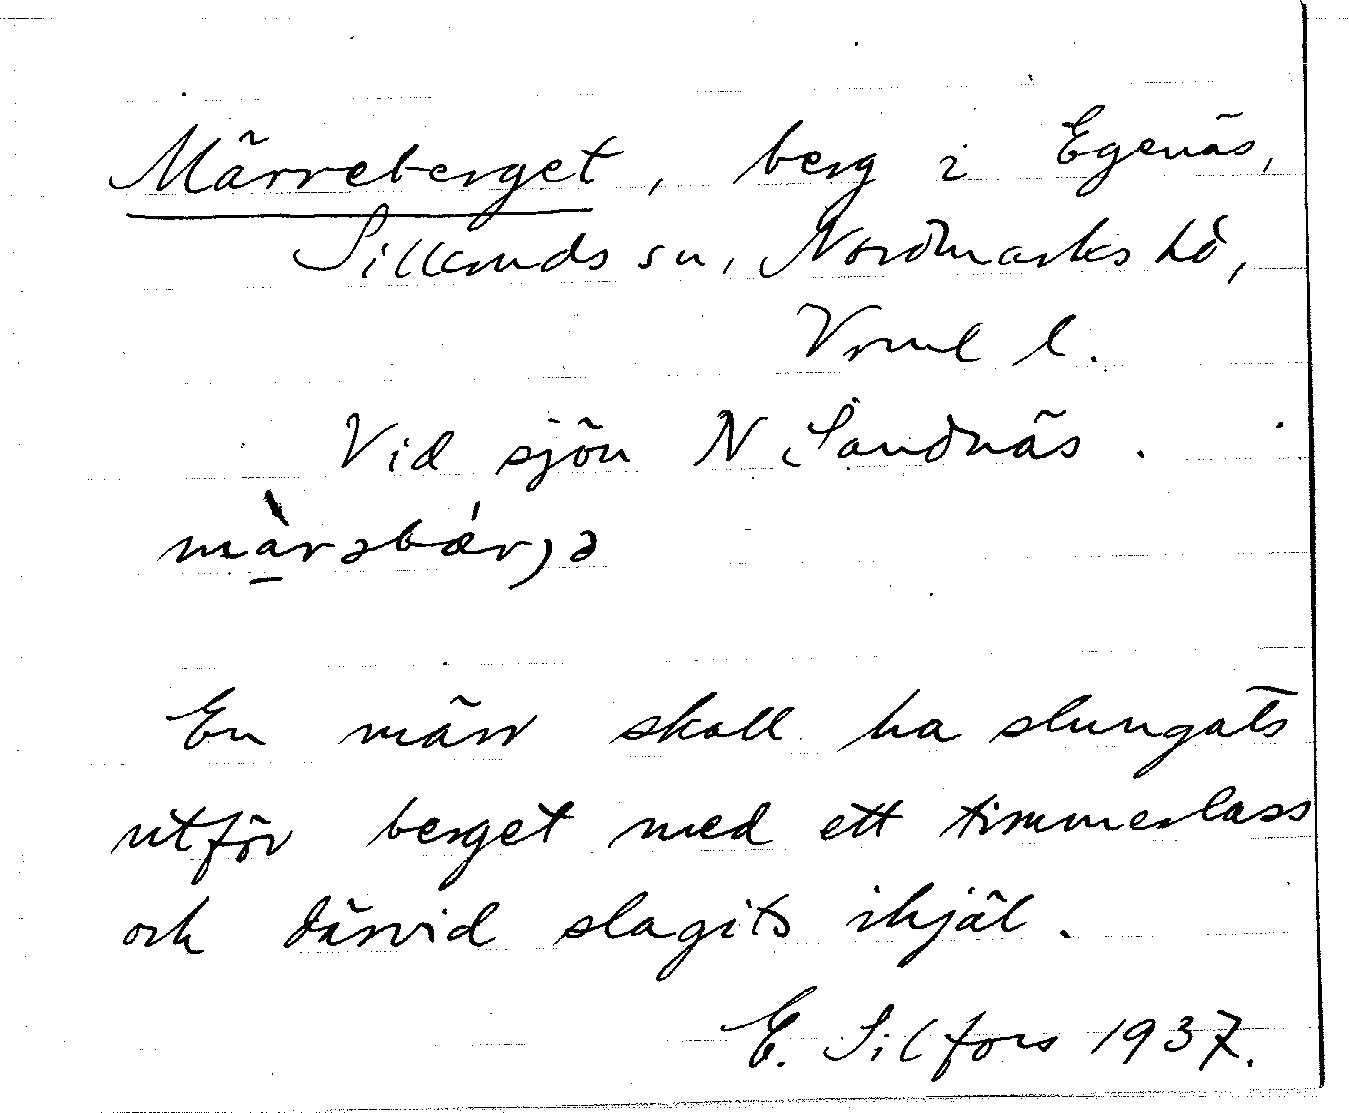 Märreberget, berg i Egenäs,
Silleruds sn, Nordmarks hd,
Vrml l.
Vid sjön N Sandnäs.
màrəbǽrjə
En märr skall ha slungats
utför berget med ett timmerlass
och därvid slagits ihjäl.
E. Silfors 1937.